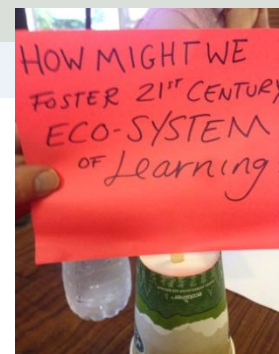 HOW MIGHT WE
FOSTER 21ST CENTURY
ECO-SYSTEM
OF Learning